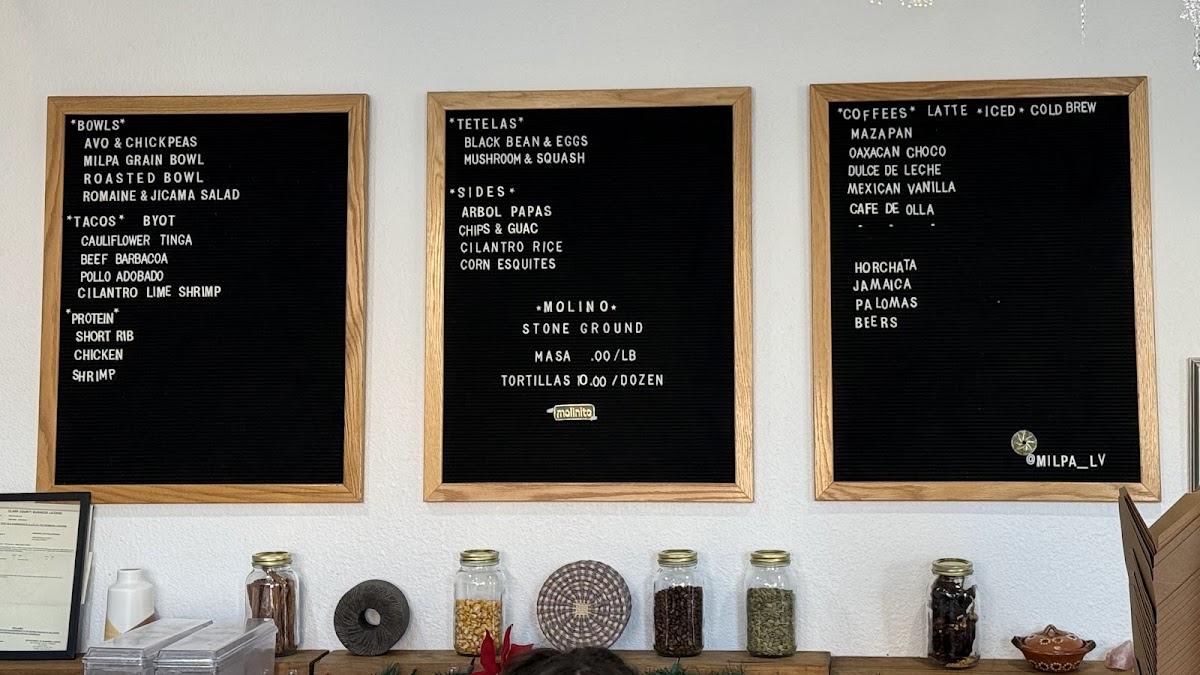 *BOWLS*
AVO & CHICKPEAS
MILPA GRAIN BOWL
ROASTED BOWL
ROMAINE & JICAMA SALAD
*TACOS* BYOT
CAULIFLOWER TINGA
BEEF BARBACOA
POLLO ADOBADO
CILANTRO LIME SHRIMP
*PROTEIN*
SHORT RIB
CHICKEN
SHRIMP
*TETELAS*
BLACK BEAN & EGGS
MUSHROOM & SQUASH
*SIDES*
ARBOL PAPAS
CHIPS & GUAC
CILANTRO RICE
CORN ESQUITES
*MOLINO*
STONE GROUND
MASA .00/LB
TORTILLAS 10.00/DOZEN
molinito
*COFFEES* LATTE *ICED* COLD BREW
MAZAPAN
OAXACAN CHOCO
DULCE DE LECHE
MEXICAN VANILLA
CAFE DE OLLA
- - -
HORCHATA
JAMAICA
PALOMAS
BEERS
@MILPA_LV
CLARK COUNTY BUSINESS LICENSE